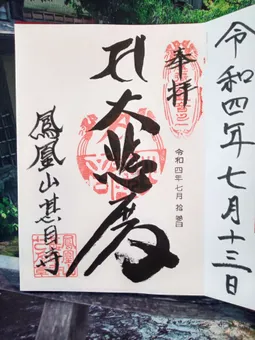 令和四年七月十三日
奉拝
令和四年七月拾参日
大悲殿
鳳凰山甚目寺